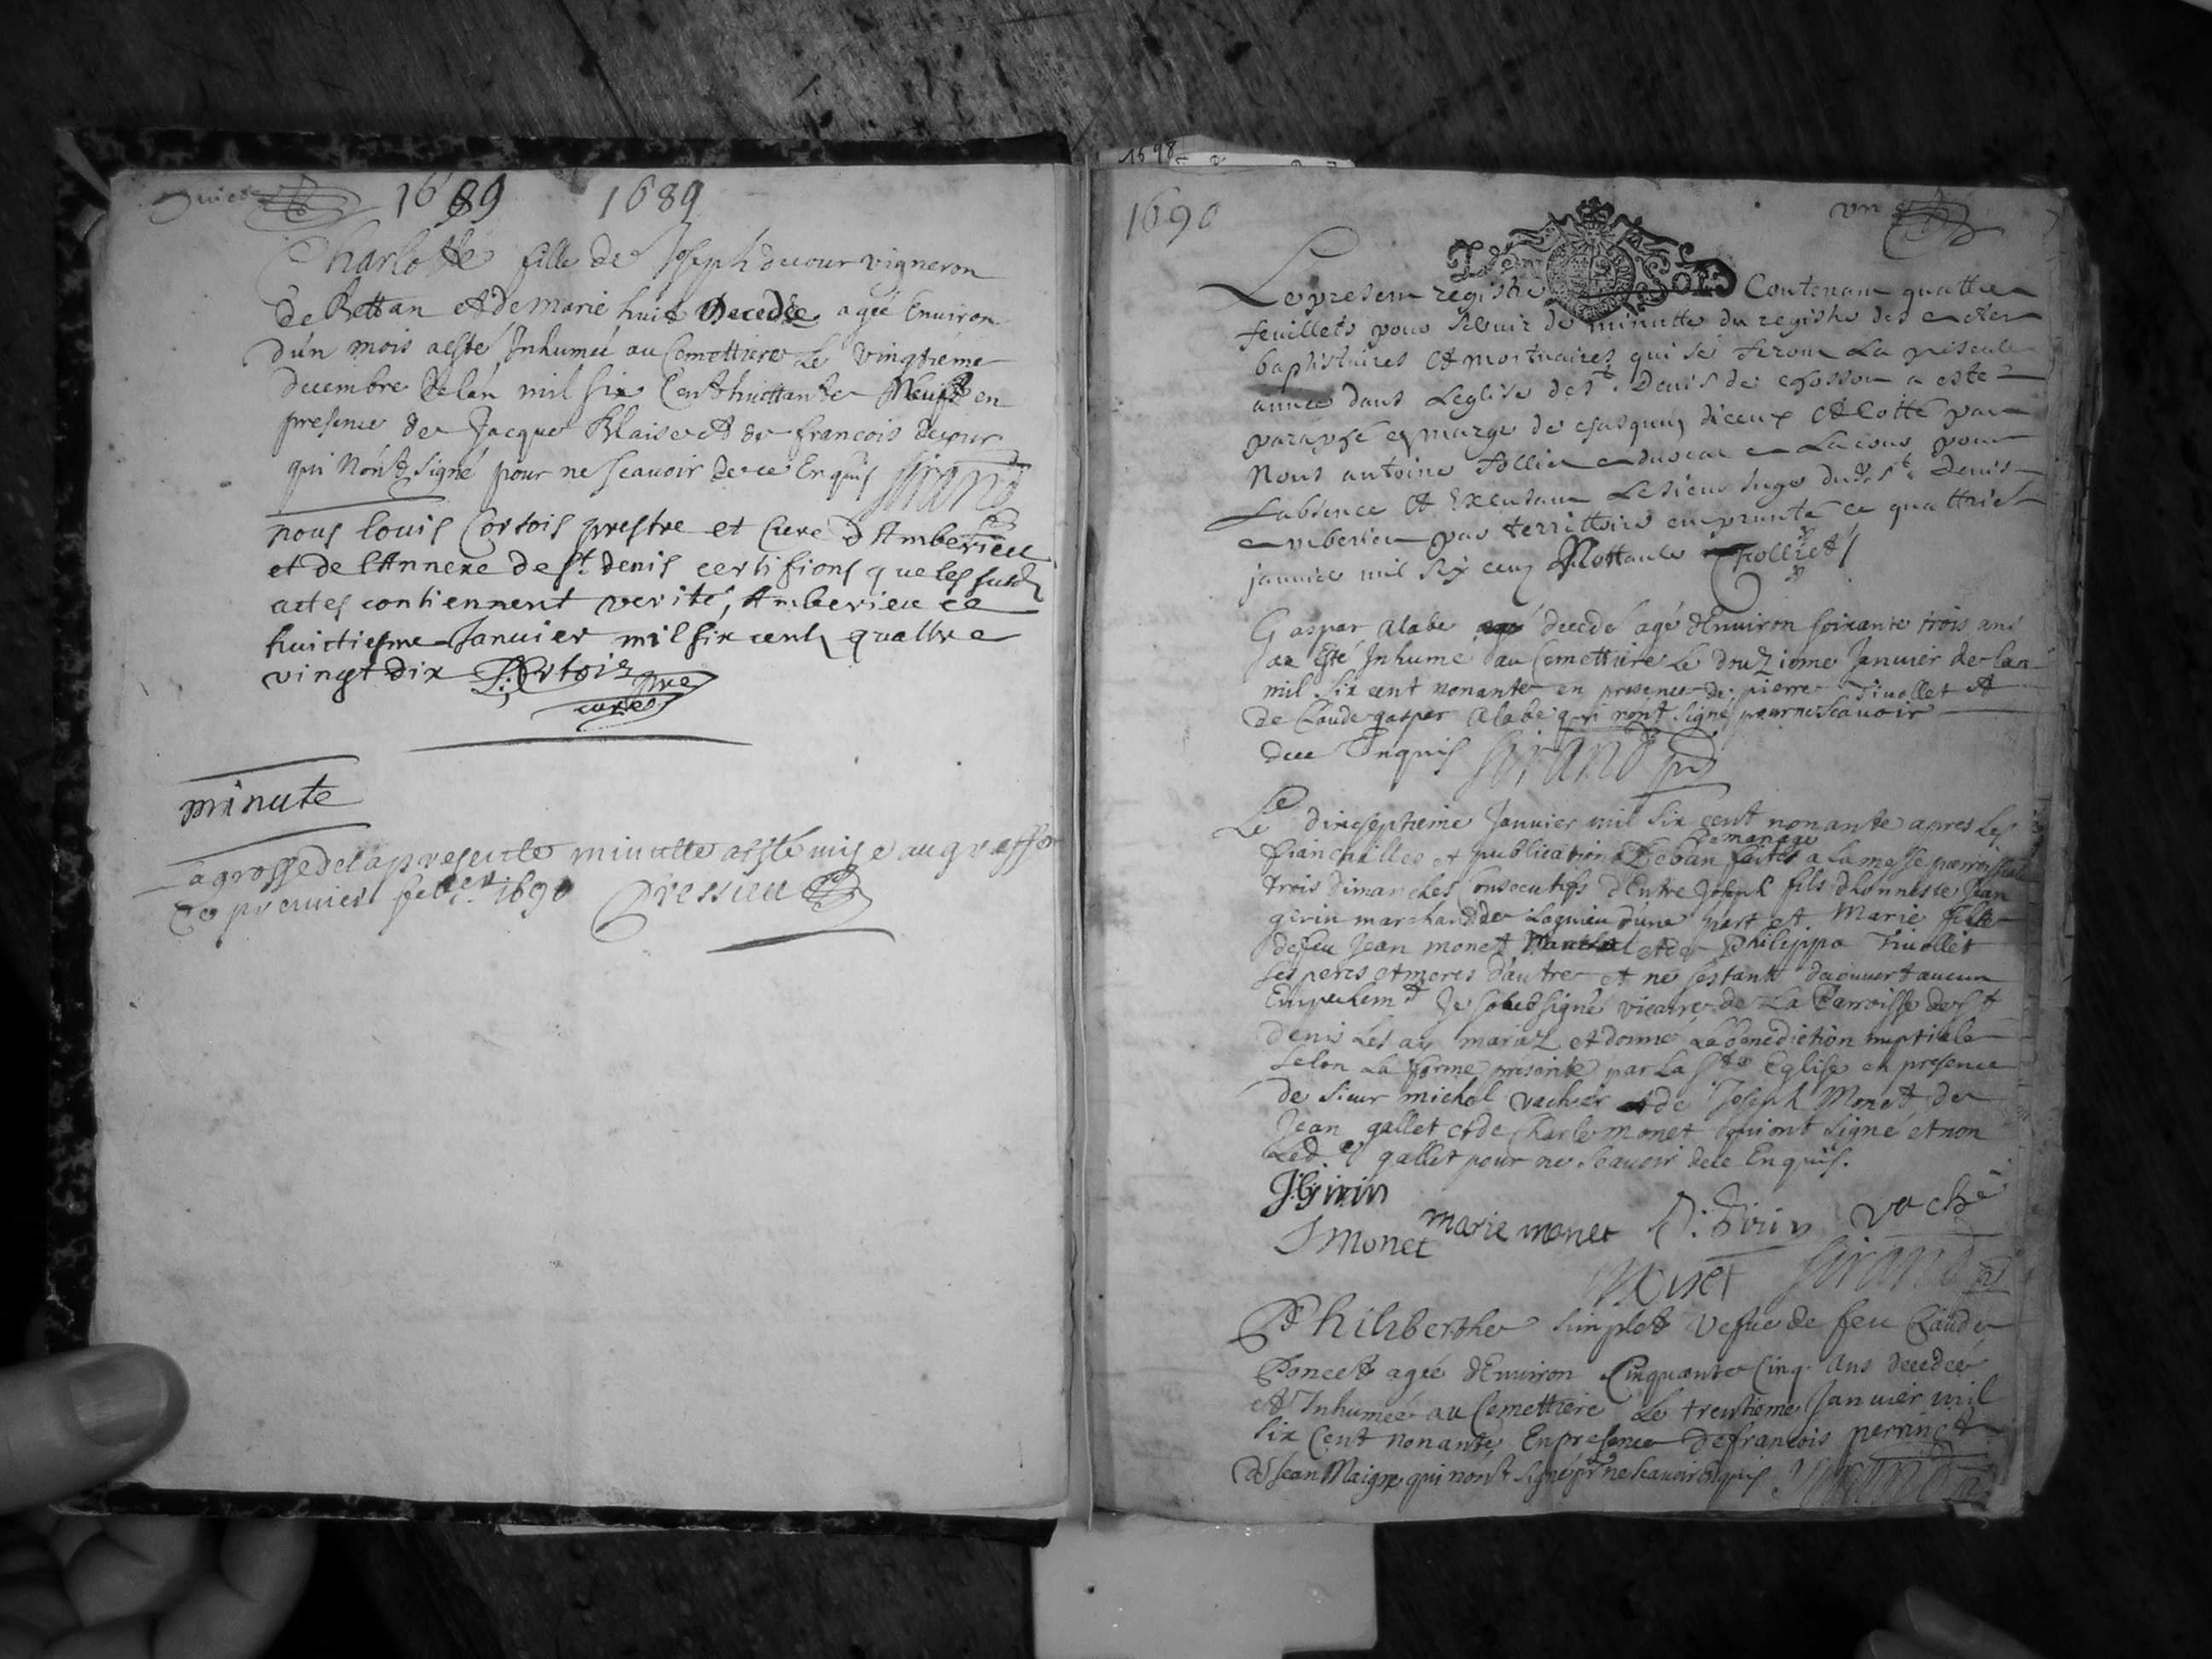 1689 1689
Charlotte fille de Joseph decour vigneron
de Bettan et de marie huit Decedée agée Environ
d'un mois aesté Inhumée au Cemettiere Le vingtiéme
decembre de lan mil six Cent huittante Neuf en
presence de Jacque Blaise et de francois decour
qui n'ont signé pour ne scavoir de ce Enquis Girand
nous louis Cortois prestre et Curé d'Amberieu
et de l'Annexe de st. denis certifions que les susd
actes contiennent verité, Amberieu ce
huictiesme Janvier mil six cents quattre
vingt dix L. Cortois pre
curé
minute
La grosse de la presente minutte a esté mise au greffe
ce premier 1690 Dressieu
1698
1690 un
Le present registre Contenant quattre
feuillets pour servir de minutte du registre des actes
baptistaires et mortuaires qui se feront La presente
année dans Leglise de st. Denis de a esté
paraphé en marge de chasquun diceux et cotté par
Nous antoine Folliet advocat en Lacour pour
Labsence et Excusant Lesieur Juge dud. st. Denis
en amberieu par territtoire emprunté ce quattrie
janvier mil six cens Nottante Folliet
Gaspar alabe decedé agé d'Environ soixante trois ans
az esté Inhumé au Cemettiere Le douziome Janvier de lan
mil six cent nonante en presence de pierre Tivollet et
de Claude gaspar alabe qui nont signé pour ne scavoir
dece Enquis Girand pr
Le dixseptieme Janvier mil six cent nonante apres Les
de mariage
fiancailles et publications De ban faites a la messe parroissiale
trois dimanches Consecutifs d'Entre Joseph fils d'honneste Jean
girin marchand de Lagnieu d'une part et Marie fille
defeu Jean monet et de Philippa Tivollet
ses peres et meres d'autre et ne sestant decouvert aucun
Empechemt Je soubsigné vicaire de La Parroisse de st
denis Les ay mariez et donné La benediction nuptiale
selon La forme prescritte par La ste Eglise en presence
de sieur michel vachier et de Joseph Monet de
Jean gallet et de Charle monet qui ont signé et non
Led. gallet pour ne scavoir dece Enquis.
J Girin
J Monet marie monet Girin vaché
Monet Girand pr
Philiberthe simplet vefve de feu Claude
Poncet agée d'Environ Cinquante Cinq ans decedée
et Inhumée au Cemettiere Le trentieme Janvier mil
six Cent nonante En presence de francois perrin et
de Jean Maigre qui nont signé pr ne scavoir Enquis Girand